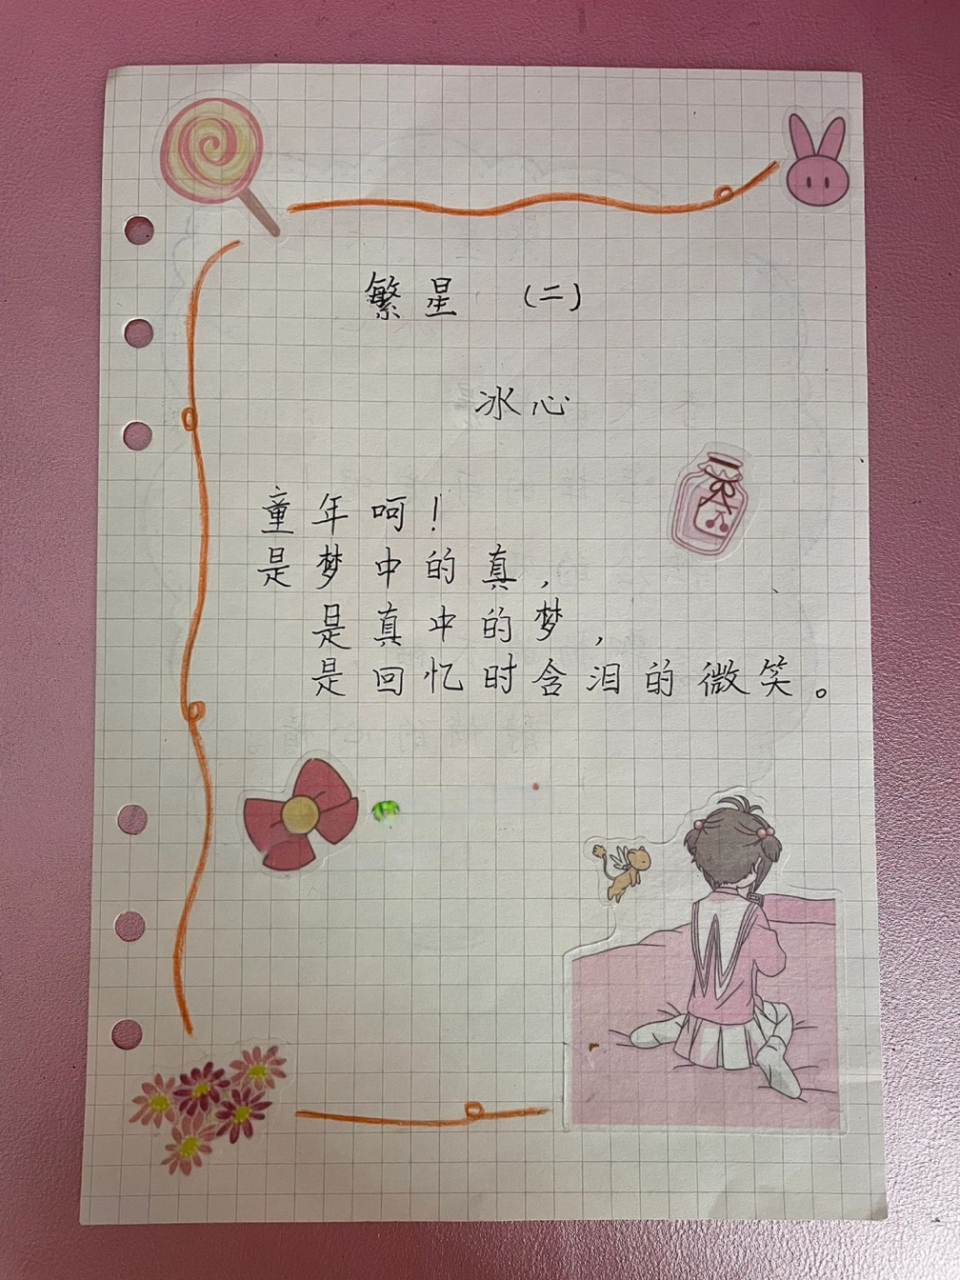 繁星 (二)
冰心
童年呵!
是梦中的真,
是真中的梦,
是回忆时含泪的微笑。